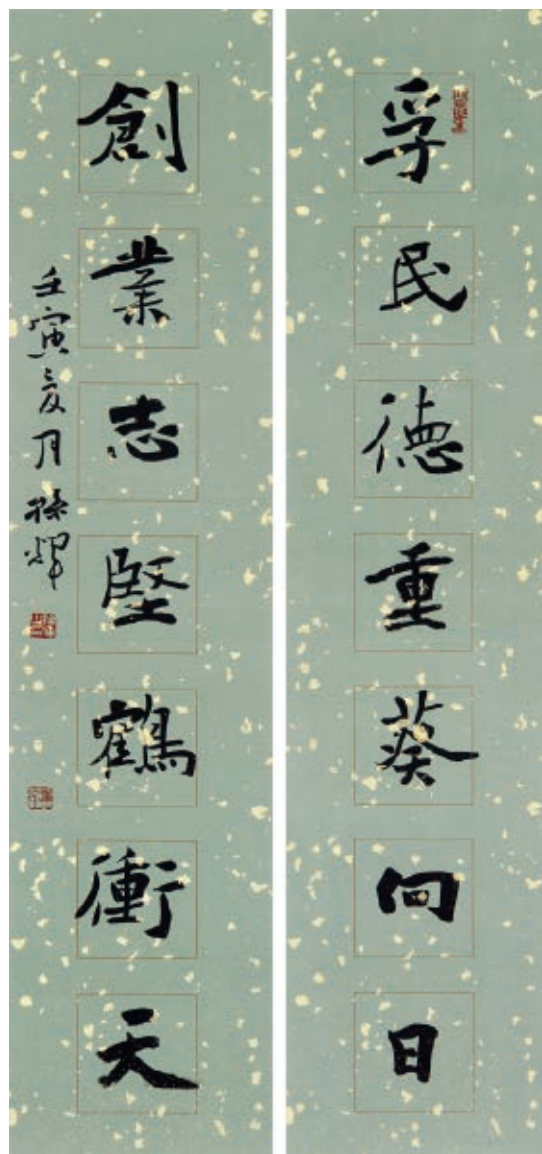 孚民德重葵向日
創業志堅鶴衝天
壬寅亥月孫輝